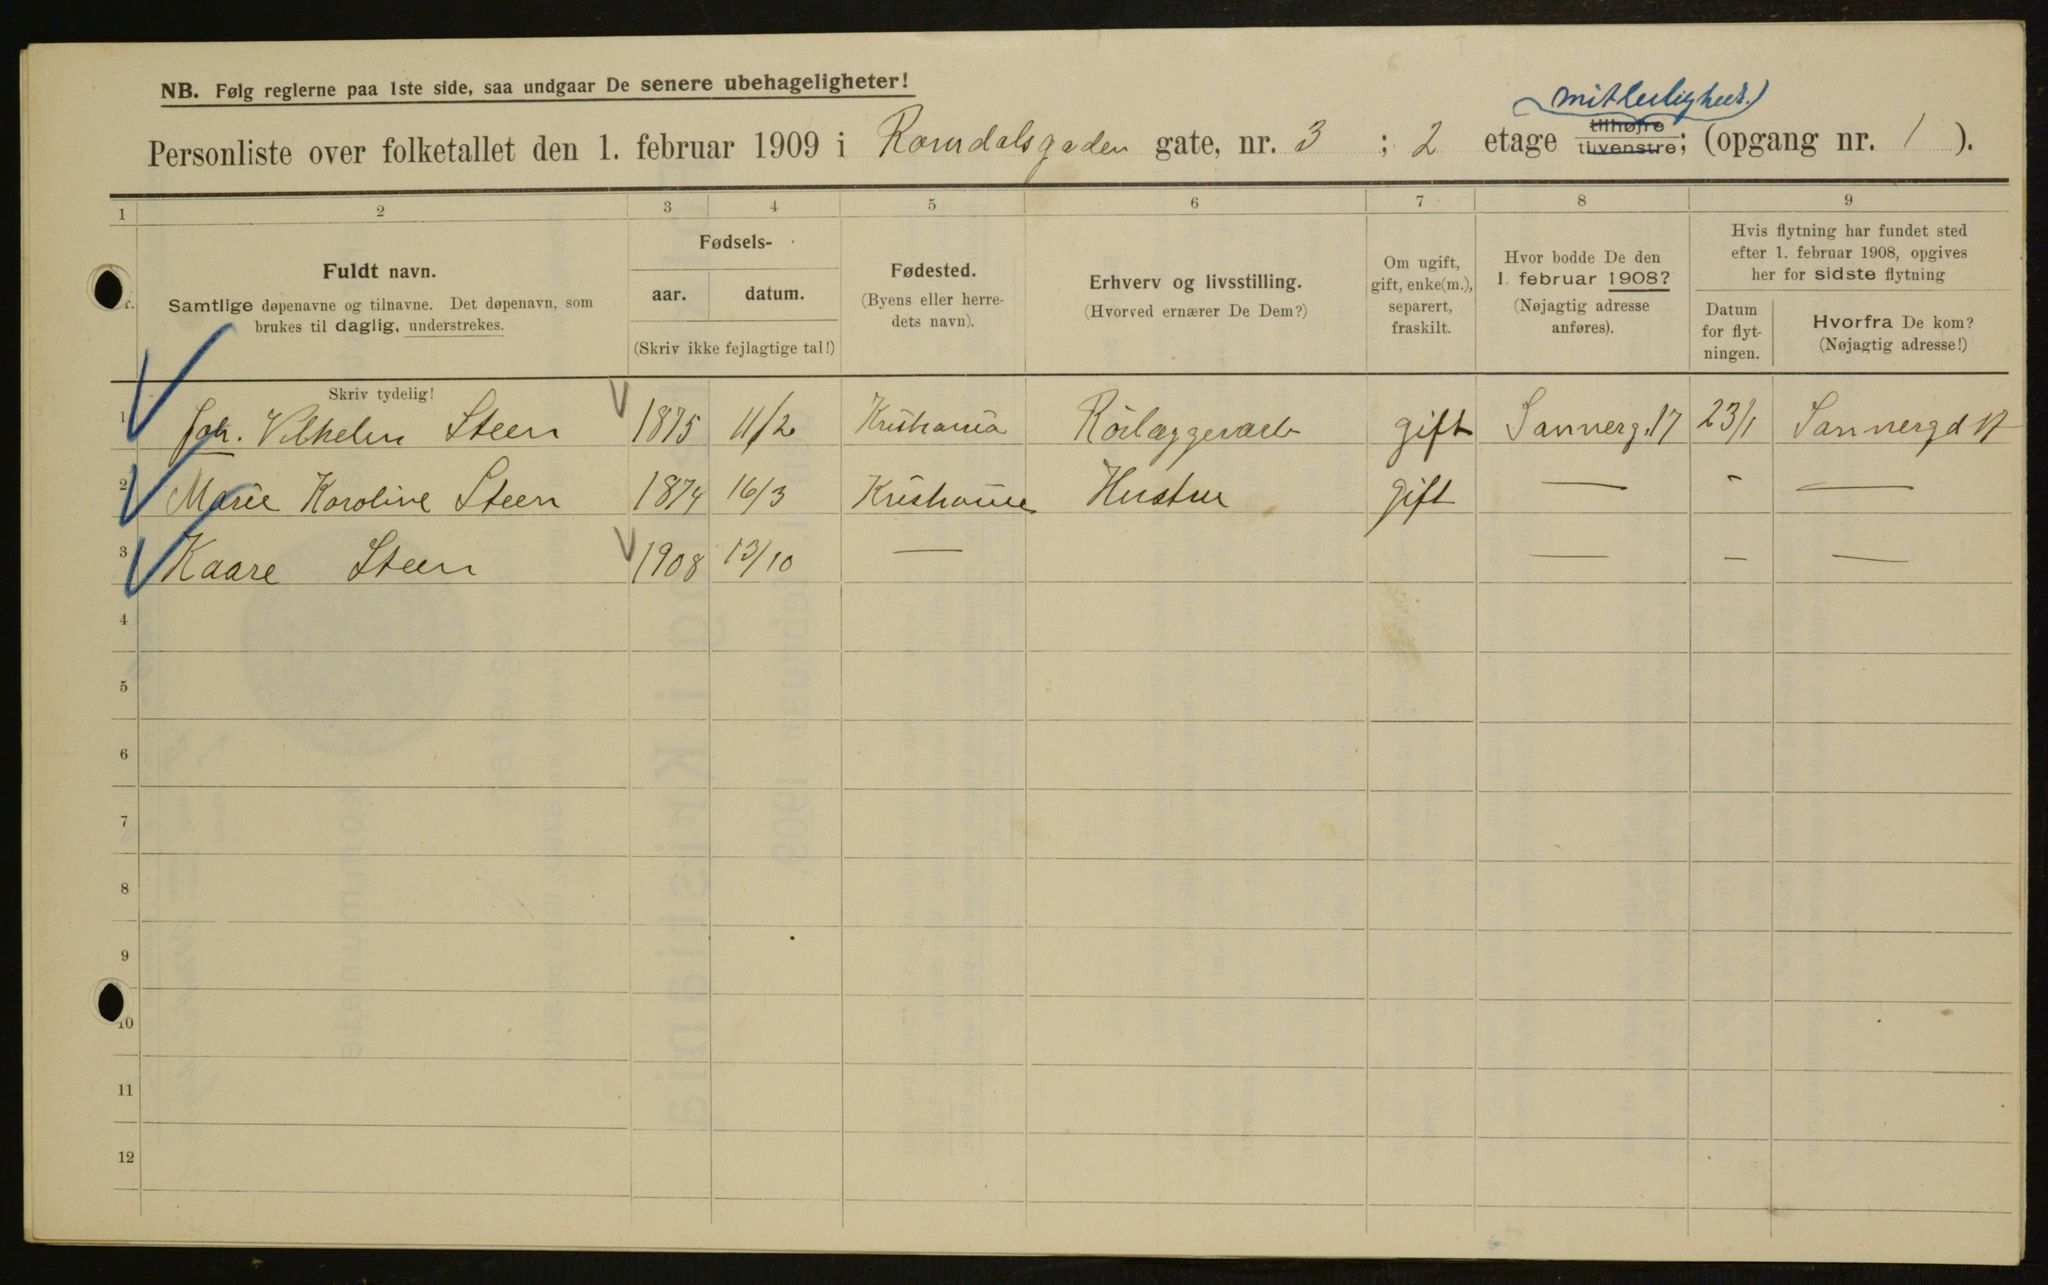 NB. Følg reglerne paa 1ste side, saa undgaar De senere ubehageligheter!
Personliste over folketallet den 1. februar 1909 i Romdalsgaden gate, nr. 3 ; 2 etage tilhøjre tilvenstre; (opgang nr. 1 ).
1 2 3 4 5 6 7 8 9
Fuldt navn.
Samtlige døpenavne og tilnavne. Det døpenavn, som
brukes til daglig, understrekes.
Skriv tydelig!
Fødsels-
aar. datum.
(Skriv ikke fejlagtige tal!)
Fødested.
(Byens eller herre-
dets navn).
Erhverv og livsstilling.
(Hvorved ernærer De Dem?)
Om ugift,
gift, enke(m.),
separert,
fraskilt.
Hvor bodde De den
1. februar 1908?
(Nøjagtig adresse
anføres).
Hvis flytning har fundet sted
efter 1. februar 1908, opgives
her for sidste flytning
Datum
for flyt-
ningen.
Hvorfra De kom?
(Nøjagtig adresse!)
1 Joh. Vilhelm Steen 1875 11/2 Kristiania gift Sannerg. 17 23/1 Sannergd 17
2 Marie Karoline Steen 1874 16/3 Kristiania Hustru gift — - —
3 Kaare Steen 1908 13/10 — — — —
4
5
6
7
8
9
10
11
12